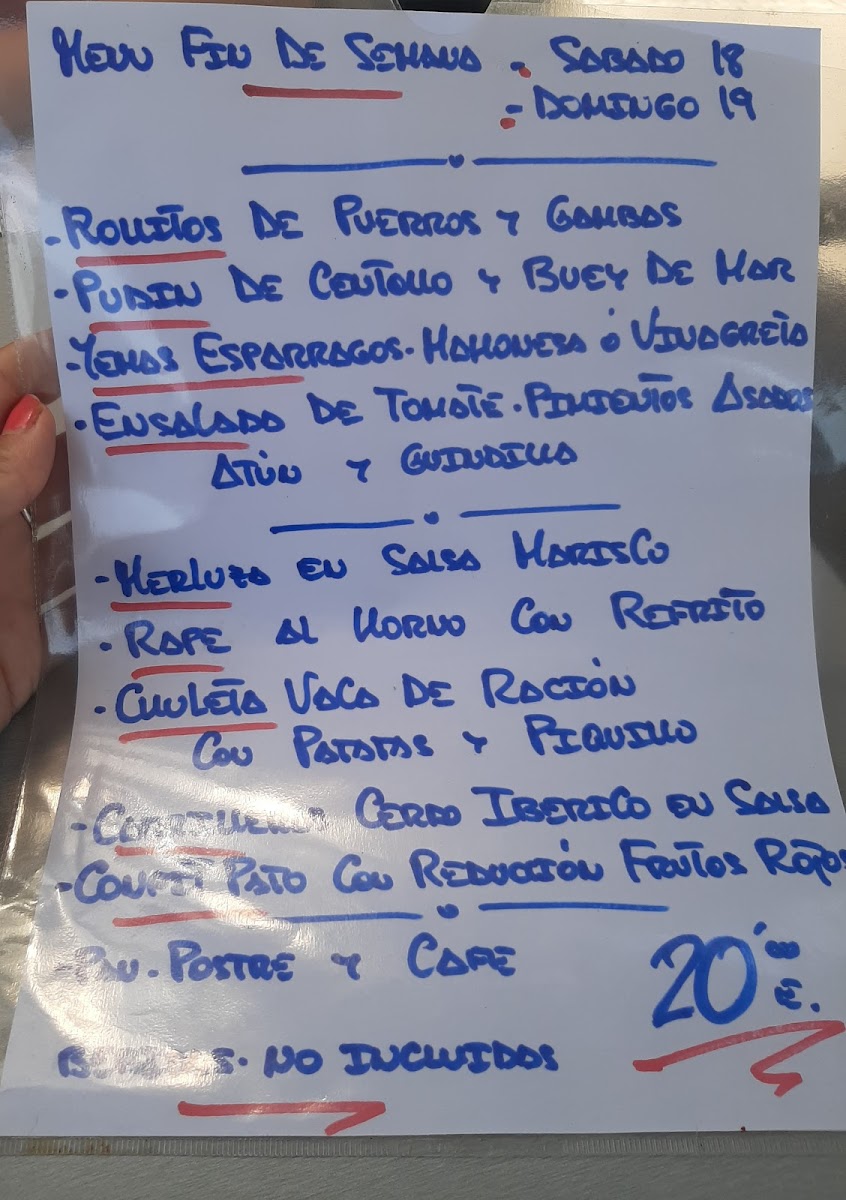 MENU FIN DE SEMANA - SABADO 18
- DOMINGO 19
- ROLLITOS DE PUERROS Y GAMBAS
- PUDIN DE CENTOLLO Y BUEY DE MAR
- YEMAS ESPARRAGOS. MAHONESA ó VINAGRETA
- ENSALADA DE TOMATE. PIMIENTOS ASADOS
ATÚN Y GUINDILLA
- MERLUZA EN SALSA MARISCO
- RAPE AL HORNO CON REFRITO
- CHULETA VACA DE RACIÓN
CON PATATAS Y PIQUILLO
- CERDO IBERICO EN SALSA
- CONFIT PATO CON REDUCCIÓN FRUTOS ROJOS
- PAN. POSTRE Y CAFE
20'00 E.
NO INCLUIDAS